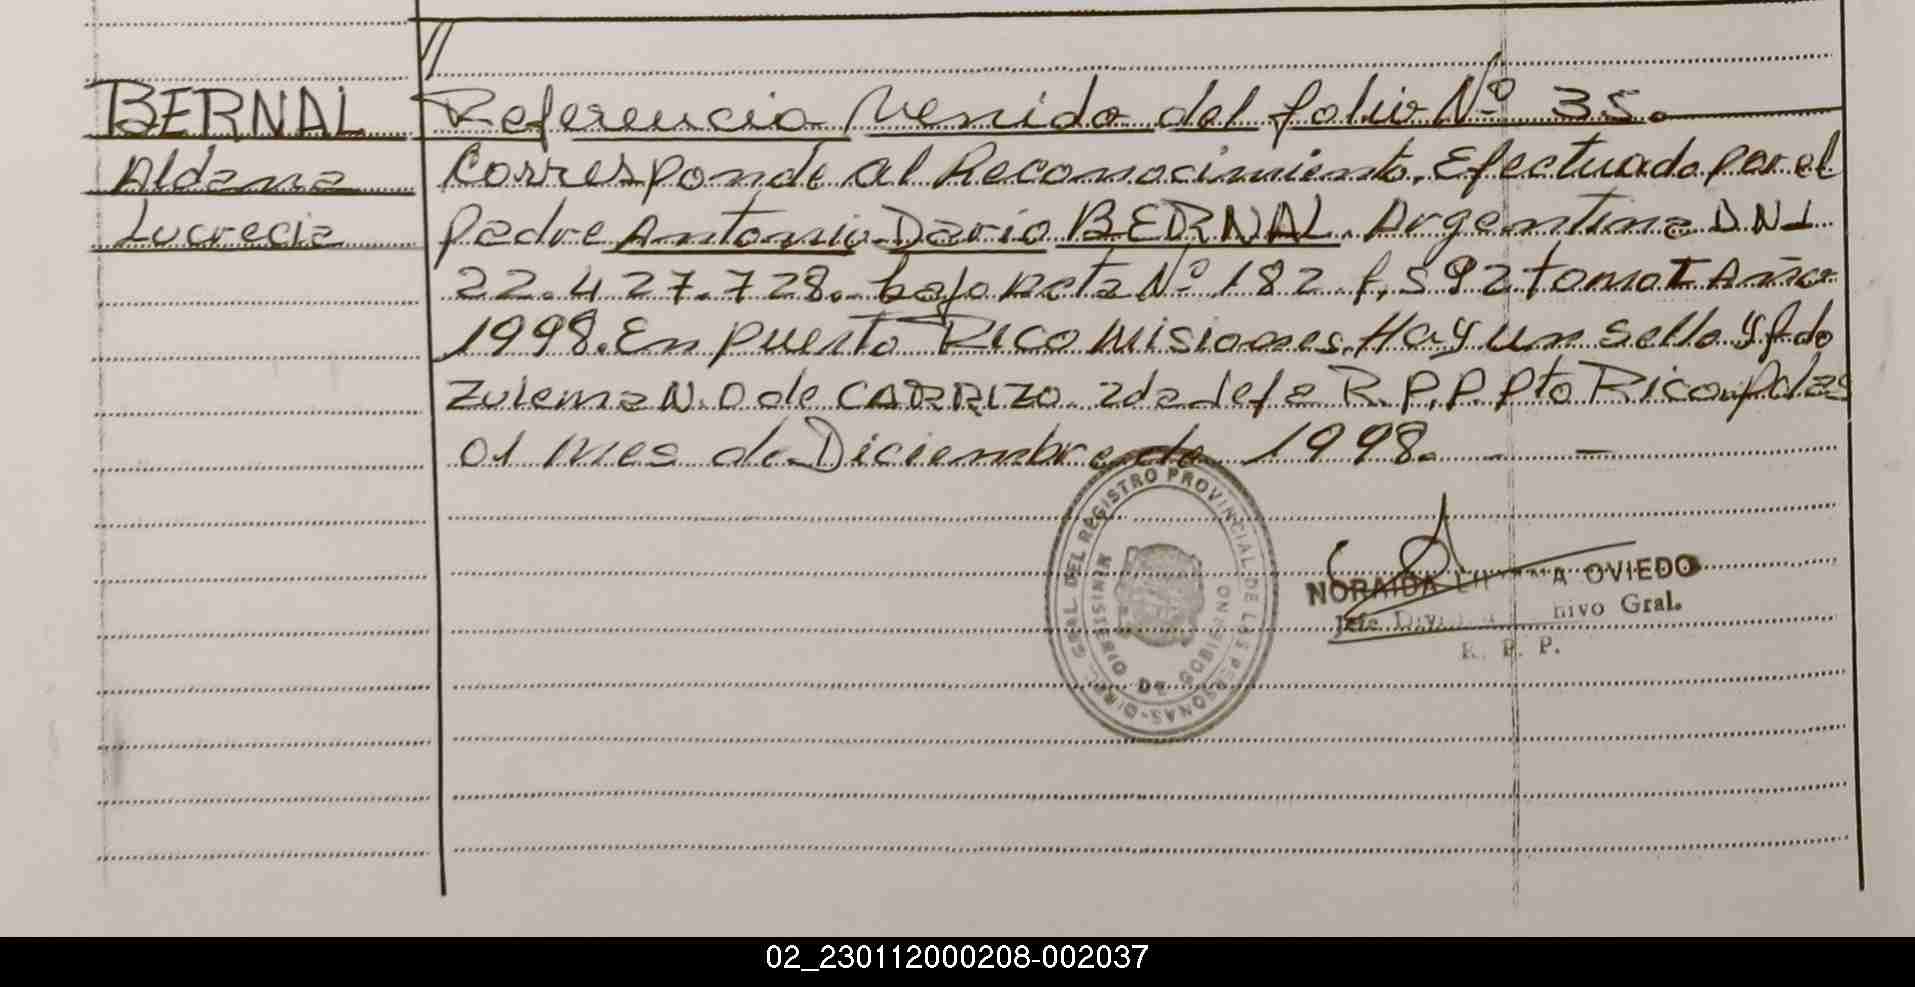 BERNAL
Aldana
Lucrecia
Referencia Venido del folio Nº 35.
Corresponde al Reconocimiento, Efectuado por el
padre Antonio Dario BERNAL. Argentina D.N.I
22.427.728. bajo Acta Nº 182 f, 592 tomo I Año
1998. En puerto Rico Misiones, Hay un sello y fdo
Zulema N. O de CARRIZO 2da Jefa R.P.P. Pto Rico
01 mes de Diciembre de 1998. -
DIREC. GRAL. DEL REGISTRO PROVINCIAL DE LAS PERSONAS-
MINISTERIO DE GOBIERNO
NORAIDA OVIEDO
Jefe Gral.
R. P. P.
02_230112000208-002037